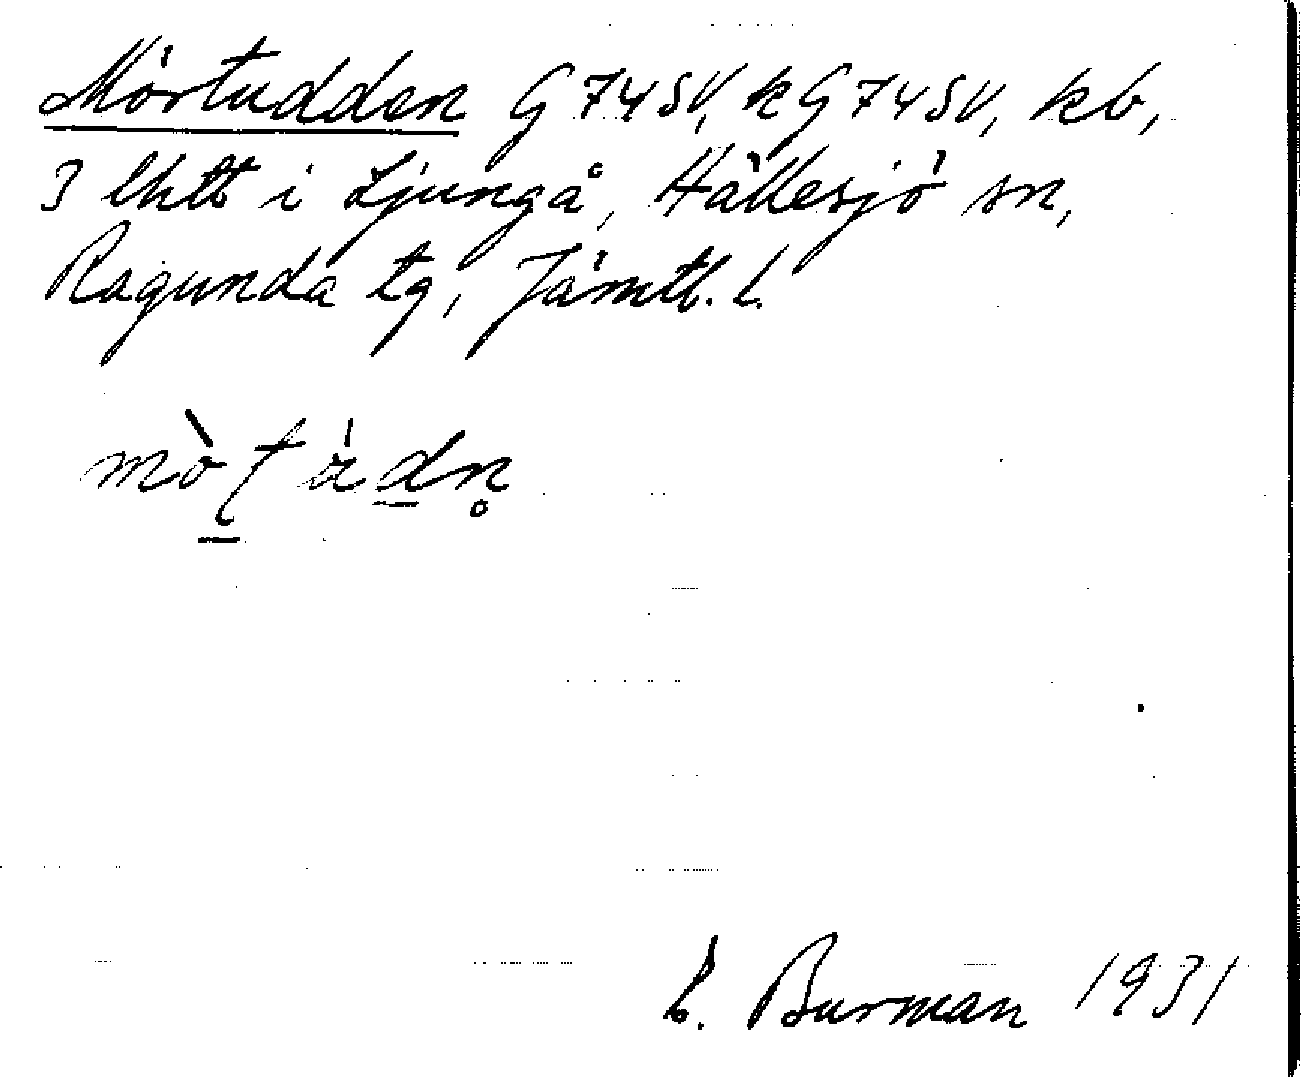 Mörtudden G 74 SV, k G 74 SV, kb,
3 lhtt i Ljungå, Hällesjö sn,
Ragunda tg, Jämtl. l.
E. Burman 1931